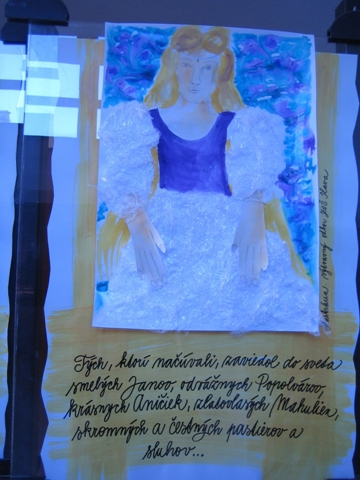 Tých, ktorí načúvali, zaviedol do sveta
smelých Janov, odvážnych Popolvárov,
krásnych Aničiek, zlatovlasých Mahulien,
skromných a čestných pastierov a
sluhov...
výtvarný